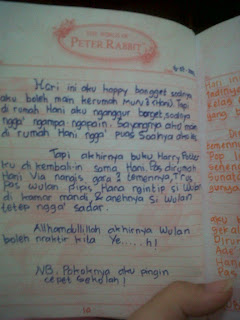 THE WORLD OF
PETER RABBIT
Hari ini aku happy bangget, soalnya
aku boleh main kerumah Muri2 (Hani). Tapi
di rumah Hani aku nganggur banget, soalnya
ngga' ngapa ngapain. Sayangnya aku main
di rumah Hani ngga' puas. Soalnya
Tapi akhirnya buku Harry Potter
ku di kembaliin sama Hani. Pas di rumah
Hani Via nangis gara2 temennya, Trus
pas wulan pipis Hana ngintip si Wulan
di kamar mandi, & anehnya si Wulan
tetep ngga' sadar.
Allhamdullillah akhirnya Wulan
boleh nraktir kita Ye.....h!
NB. Pokoknya aku pingin
cepet Sekolah!